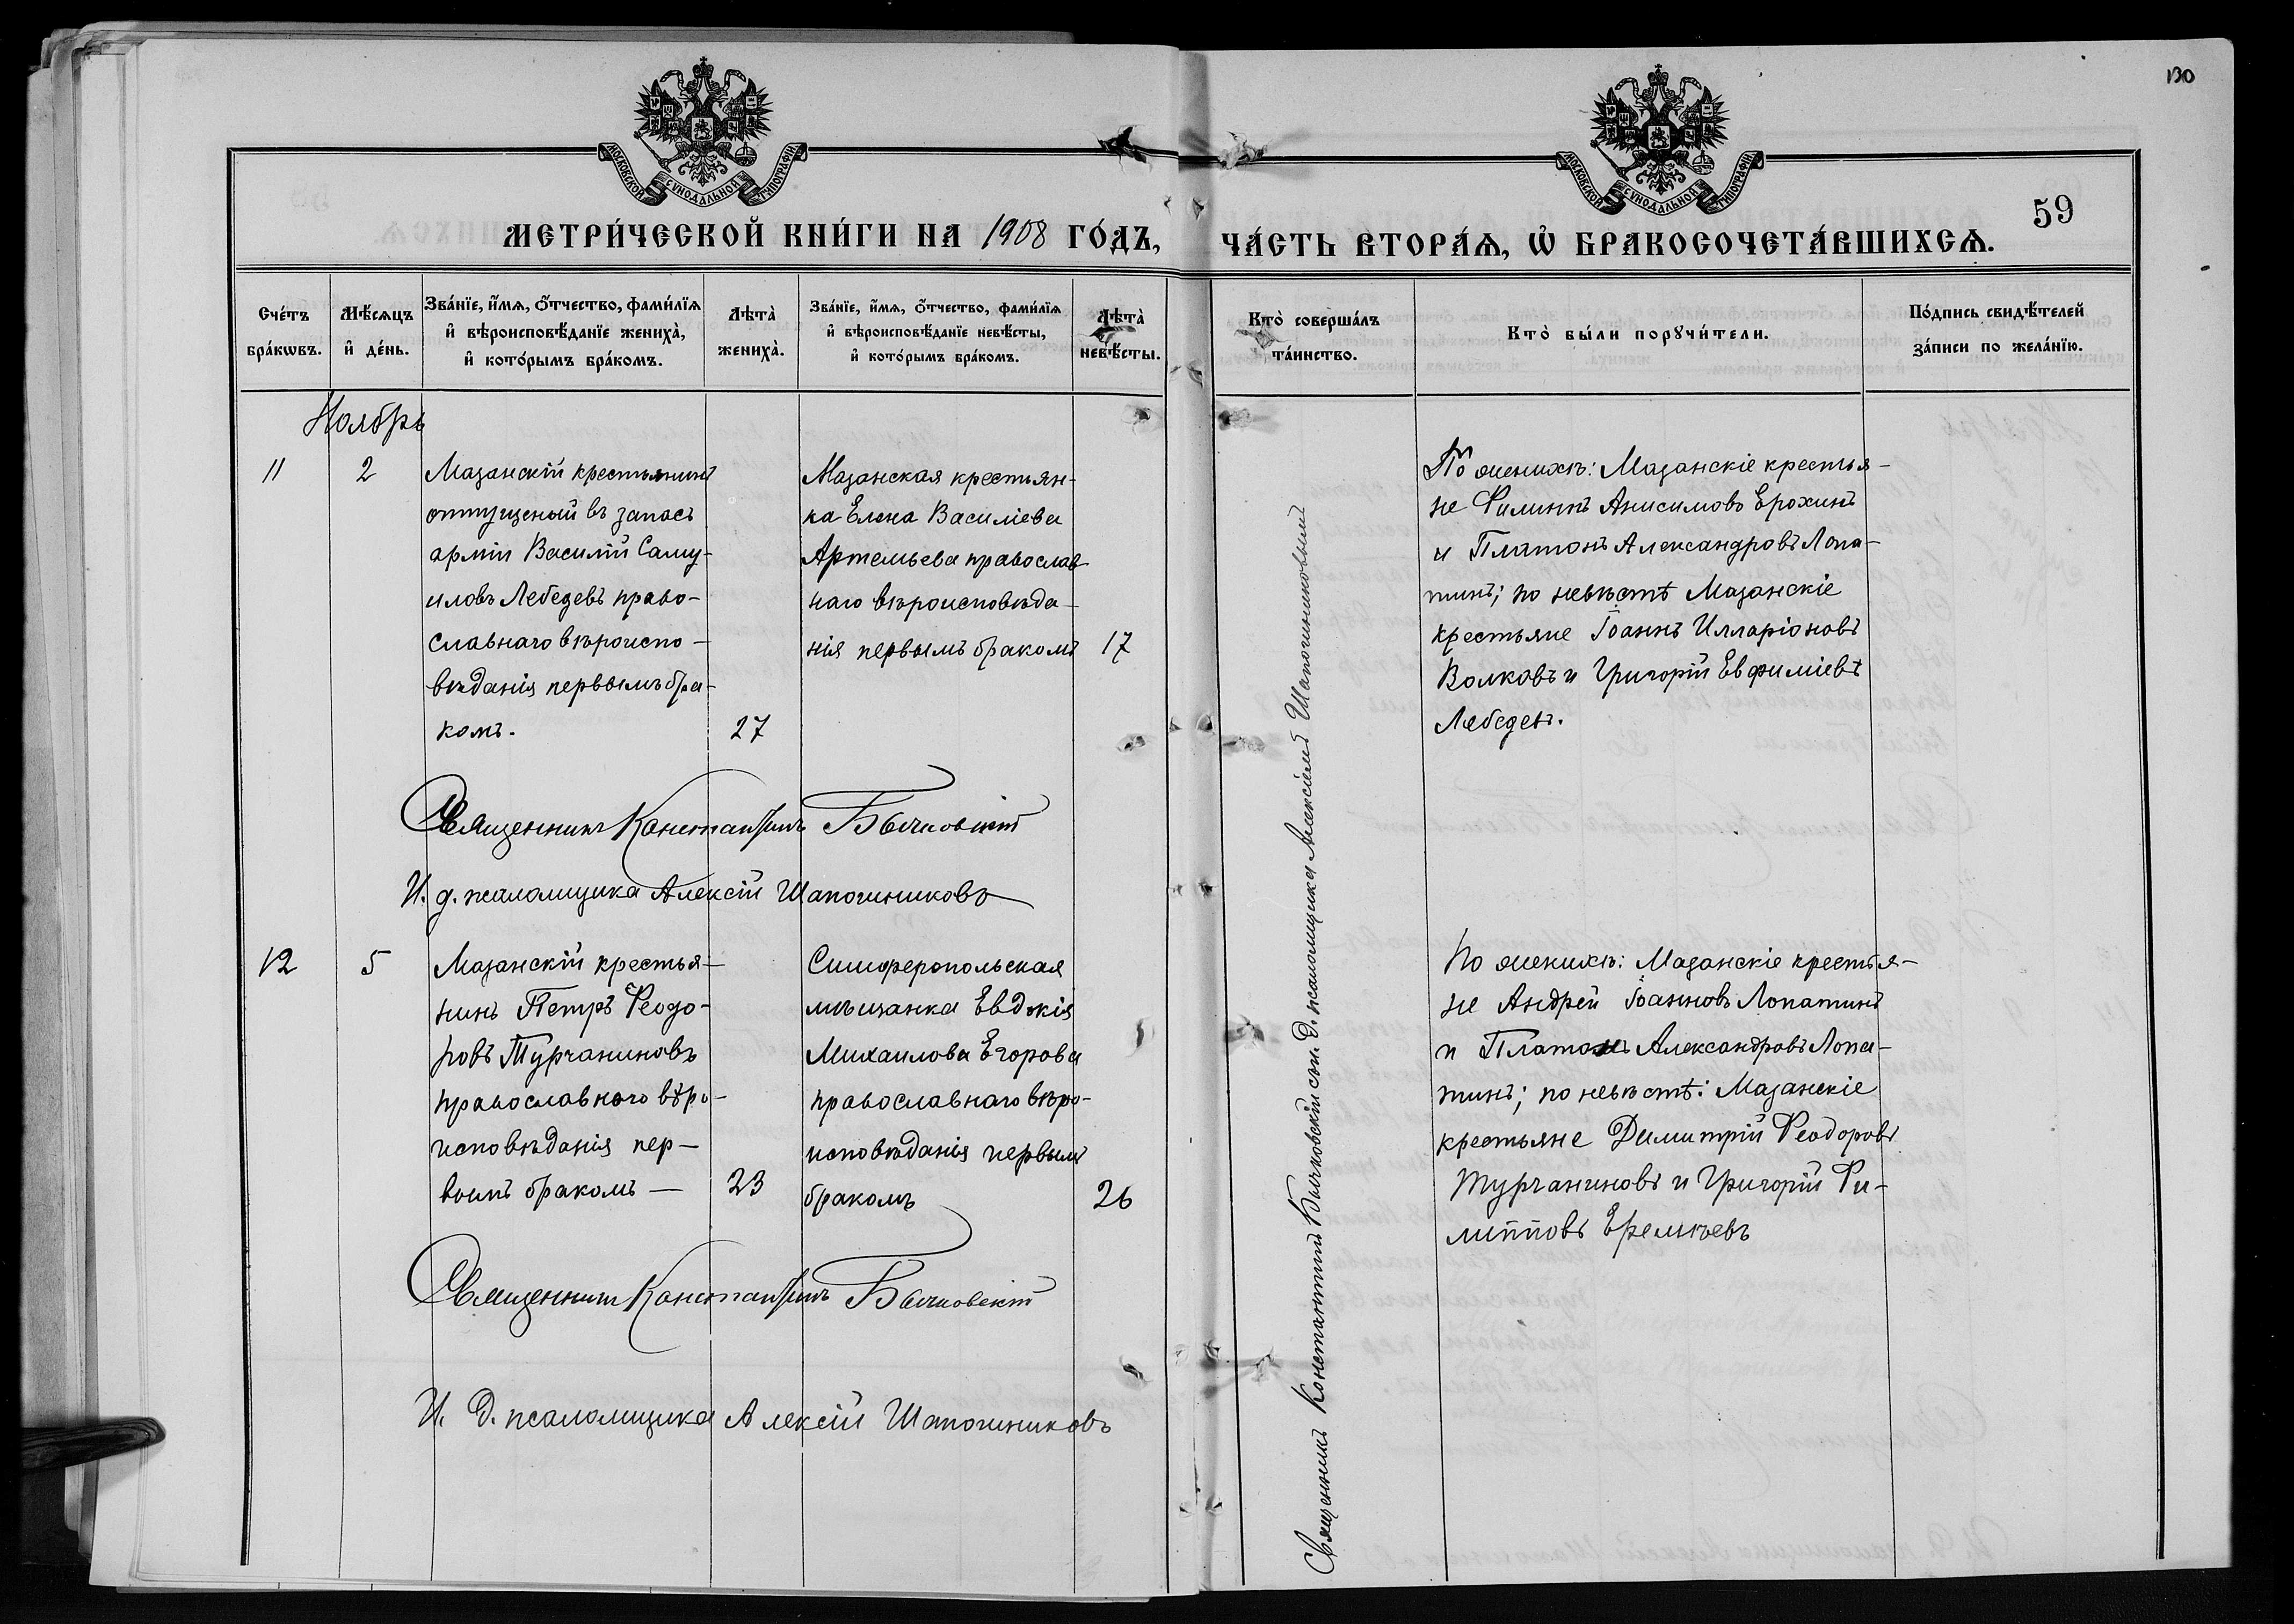 130
МОСКОВСКОЙ СѴНОДАЛЬНОЙ ТИПОГРАФІИ
МОСКОВСКОЙ СѴНОДАЛЬНОЙ ТИПОГРАФІИ
59
МЕТРИ́ЧЕСКОЙ КНИ́ГИ НА 1908 ГО́ДЪ,
ЧА́СТЬ ВТОРА́Ѧ, Ѡ҆ БРАКОСОЧЕТА́ВШИХСѦ.
Сче́тъ
бра́кѡвъ.
Мѣ́сѧцъ
и҆ де́нь.
Зва́нїе, и҆́мѧ, ѻ҆́тчество, фами́лїѧ
и҆ вѣроисповѣ́данїе жениха̀,
и҆ кото́рымъ бра́комъ.
Лѣта̀
жениха̀.
Зва́нїе, и҆́мѧ, ѻ҆́тчество, фами́лїѧ
и҆ вѣроисповѣ́данїе невѣ́сты,
и҆ кото́рымъ бра́комъ.
Лѣта̀
невѣ́сты.
Кто̀ соверша́лъ
та́инство.
Кто̀ бы́ли порꙋчи́тели.
По́дпись свидѣ́телей
за́писи по жела́нїю.
Ноябрь
11
2
Мазанскій крестьянинъ
отпущеный въ запасъ
арміи Василій Саму-
иловъ Лебедевъ право-
славнаго вѣроиспо-
вѣданія первымъ бра-
комъ.
27
Мазанская крестьян-
ка Елена Василіева
Артемьева православ
наго вѣроисповѣда-
нія первымъ бракомъ
17
По женихѣ: Мазанскіе крестья-
не Филиппъ Анисимовъ Ерохинъ
и Платонъ Александровъ Лопа-
тинъ; по невѣстѣ Мазанскіе
крестьяне Іоаннъ Илларіоновъ
Волковъ и Григорій Евфиміевъ
Лебедевъ.
Священникъ Константинъ Бычковскій
И. д. псаломщика Алексій Шапошниковъ
12
5
Мазанскій крестья-
нинъ Петръ Ѳеодо-
ровъ Турчаниновъ
православнаго вѣро-
исповѣданія пер-
вымъ бракомъ —
23
Симферопольская
мѣщанка Евдокія
Михаилова Егорова
православнаго вѣро-
исповѣданія первымъ
бракомъ
26
По женихѣ: Мазанскіе крестья-
не Андрей Іоанновъ Лопатинъ
и Платонъ Александровъ Лопа-
тинъ; по невѣстѣ: Мазанскіе
крестьяне Димитрій Ѳеодоровъ
Турчаниновъ и Григорій Фи-
липповъ Еремѣевъ
Священникъ Константинъ Бычковскій
И. д. псаломщика Алексій Шапошниковъ
Священникъ Константинъ Бычковскій съ и. д. псаломщика Алексіемъ Шапошниковымъ